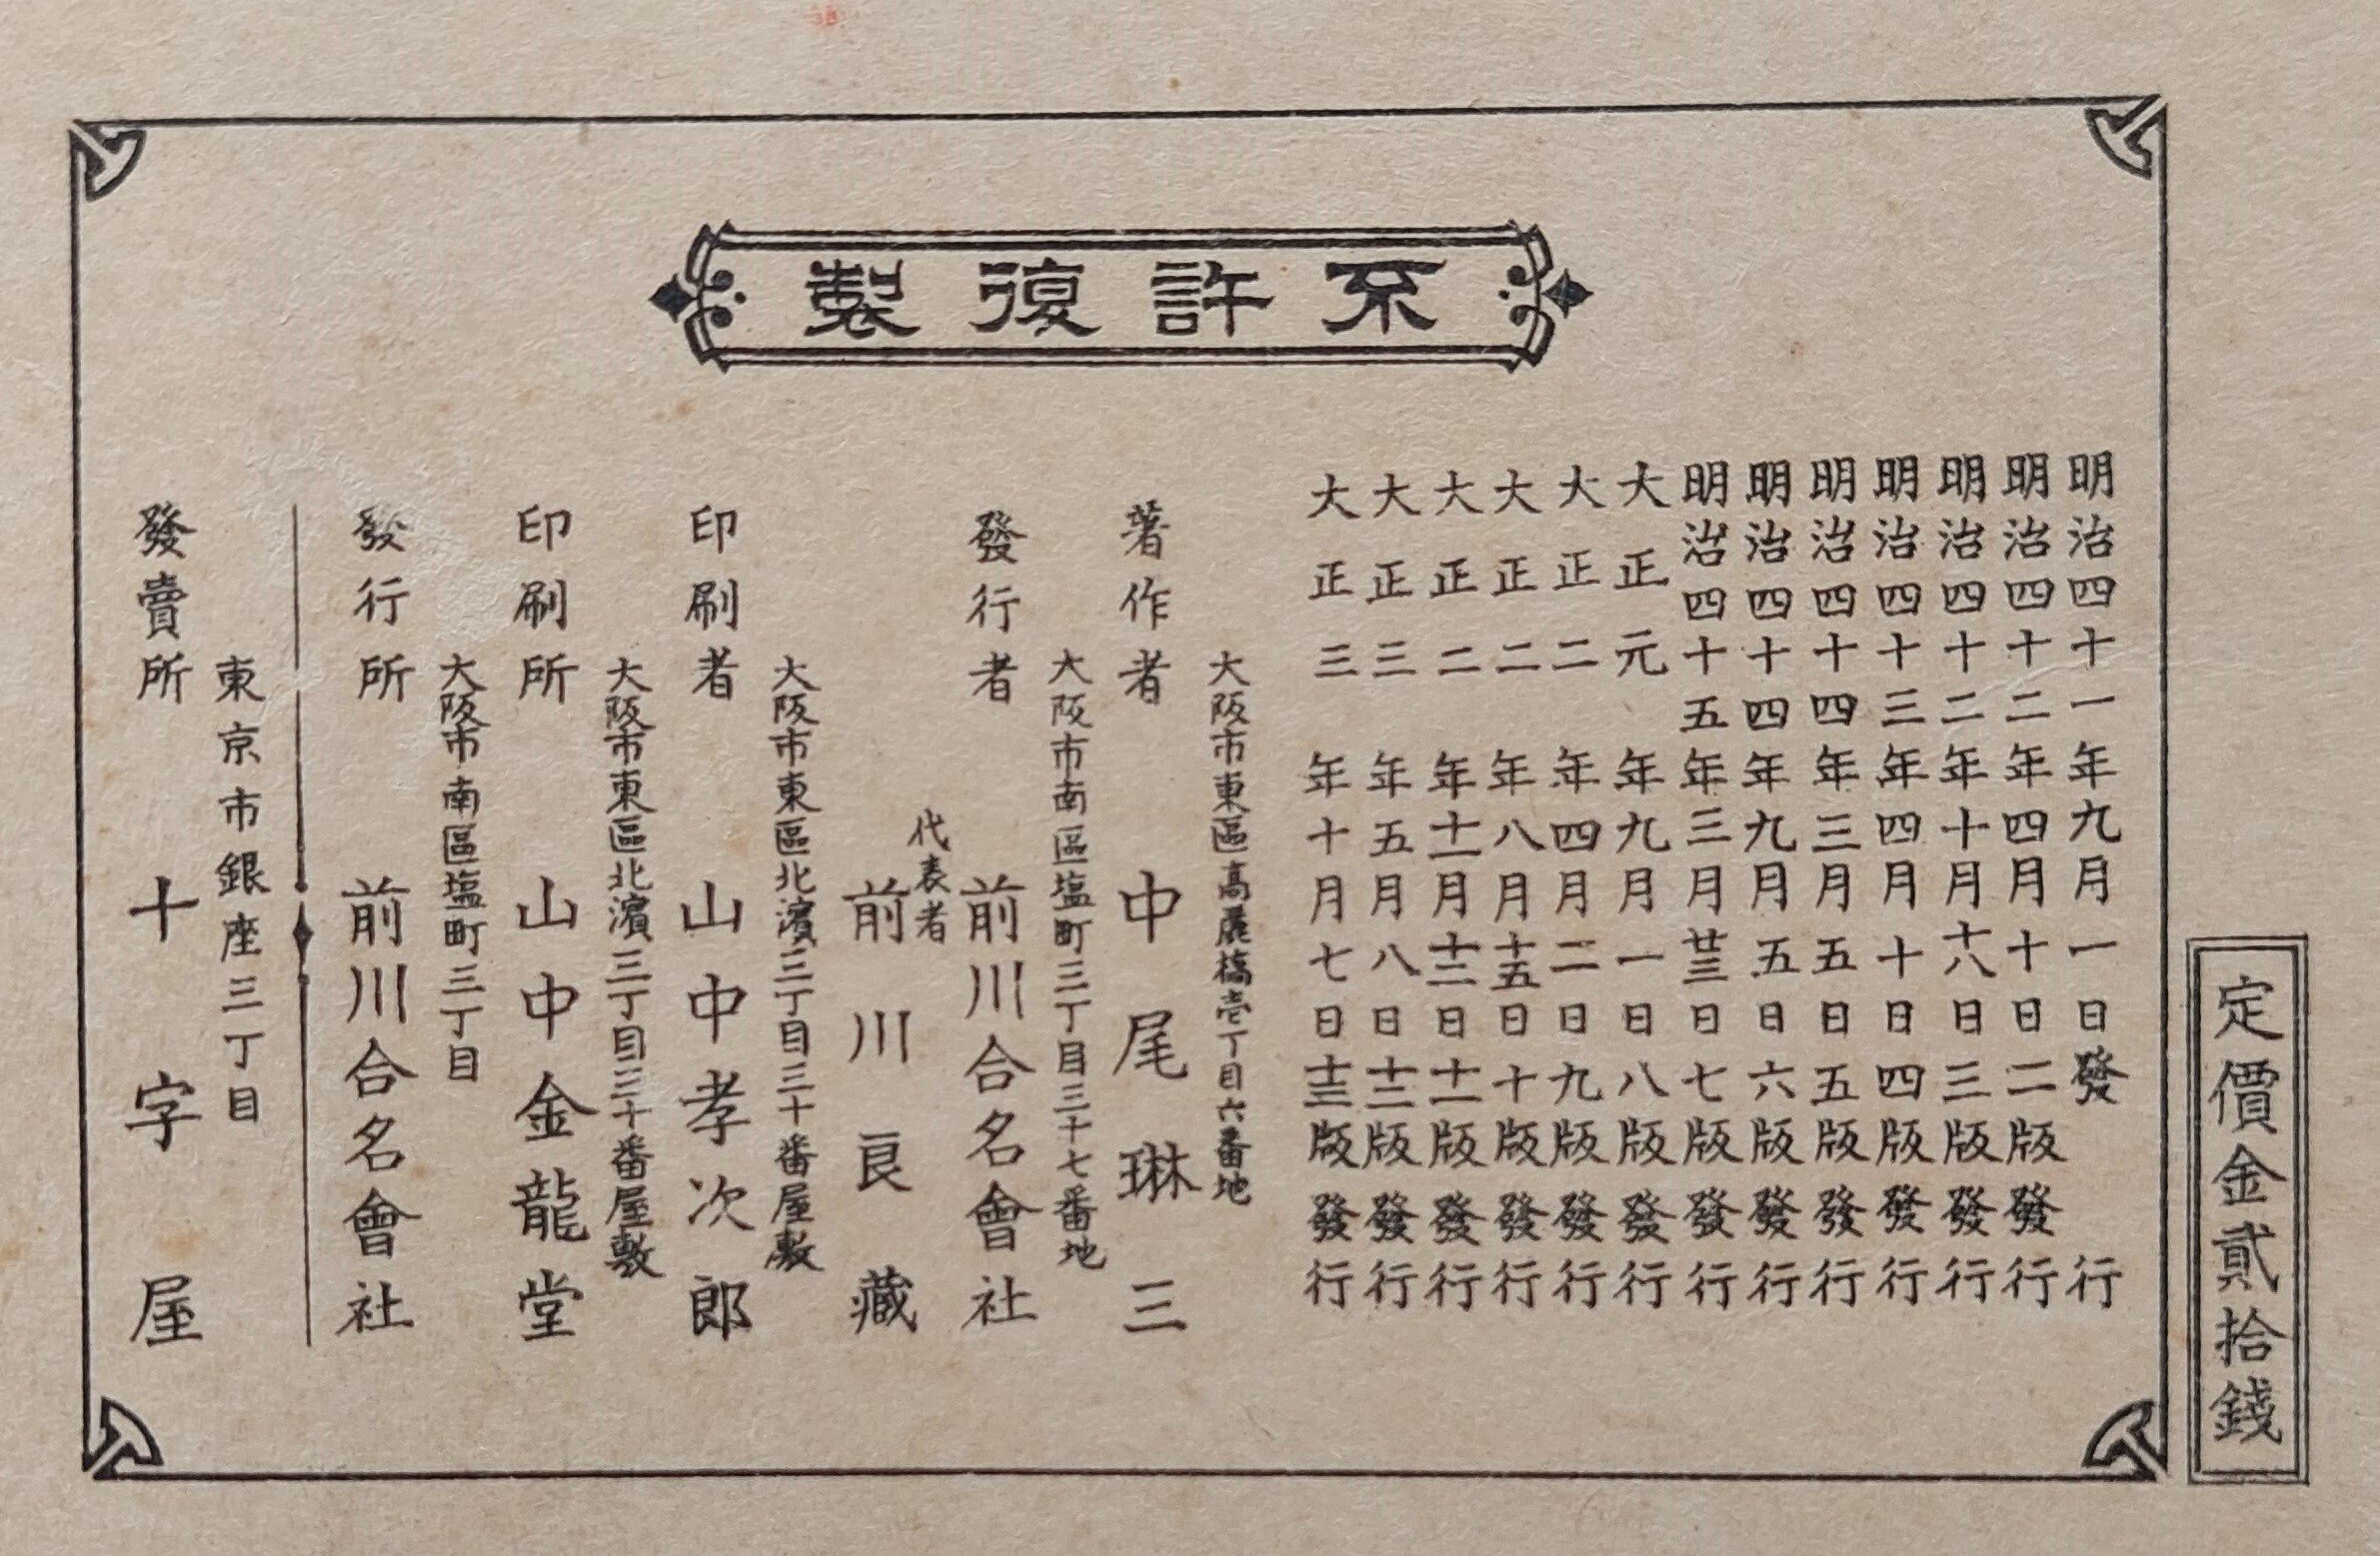 定價金貳拾錢
不許復製
明治四十一年九月一日發行
明治四十二年四月十日二版發行
明治四十二年十月十八日三版發行
明治四十三年四月十日四版發行
明治四十四年三月五日五版發行
明治四十四年九月五日六版發行
明治四十五年三月廿三日七版發行
大正元年九月一日八版發行
大正二年四月二日九版發行
大正二年八月十五日十版發行
大正二年十一月十三日十一版發行
大正三年五月八日十二版發行
大正三年十月七日十三版發行
大阪市東區高麗橋壱丁目六番地
著作者 中尾琳三
大阪市南區塩町三丁目三十七番地
發行者 前川合名會社
代表者
前川良藏
大阪市東區北濱三丁目三十番屋敷
印刷者 山中孝次郎
大阪市東區北濱三丁目三十番屋敷
印刷所 山中金龍堂
大阪市南區塩町三丁目
發行所 前川合名會社
東京市銀座三丁目
發賣所 十字屋